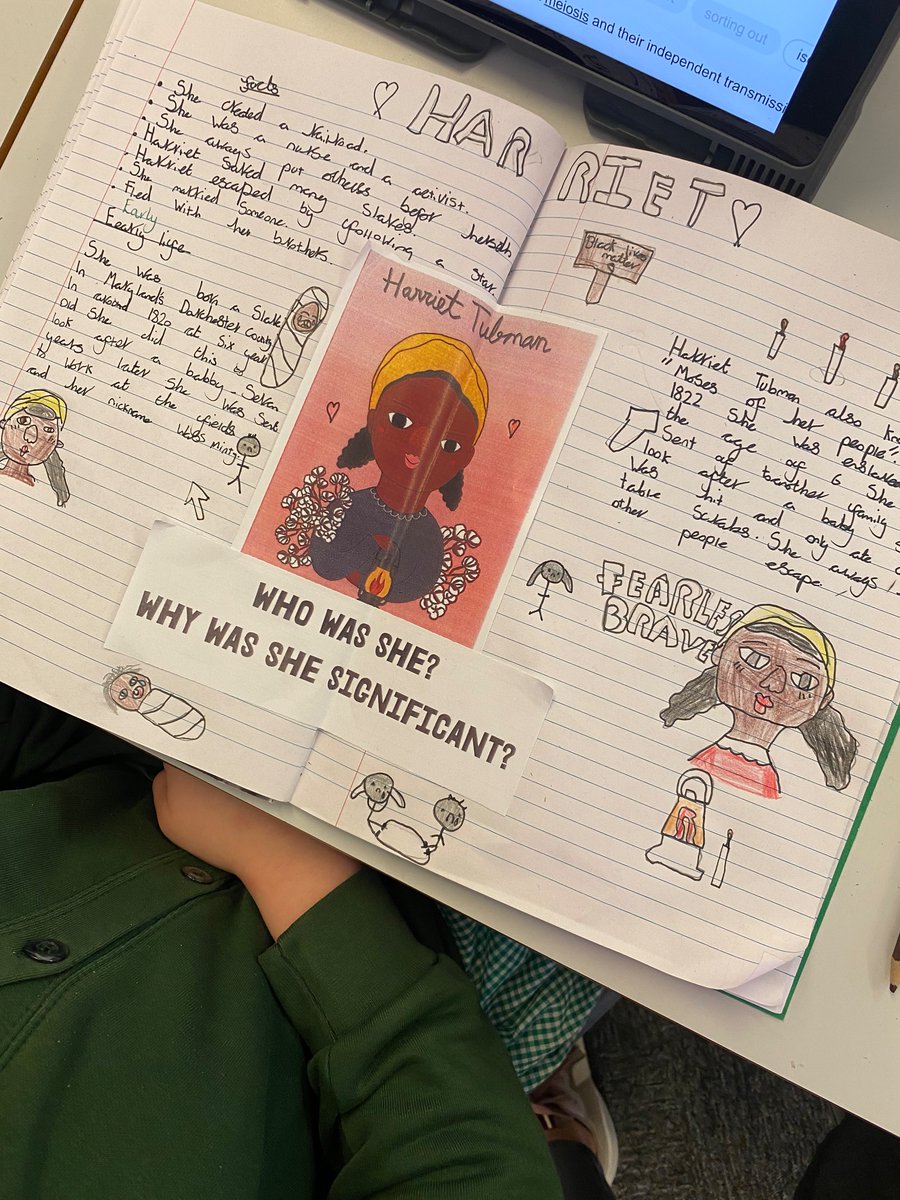 meiosis and their independent transmissi
sorting out
HAR RIET
facts
• She created a railroad.
• She was a nurse and a activist.
• She always put others befor herselth
• Harriet Saked many Slakes
• Harriet escaped by following a star
• She married Someone.
• Fled with her brothers.
Early
Early life
She was born a Slake
In Maryland's Dorchester County
In around 1820 at six year
old She did this to
look after a babby Seven
years later She was Sent
to work at the fields
and her nickname was minty
Harriet Tubman
WHO WAS SHE?
WHY WAS SHE SIGNIFICANT?
Black lives
matter
Harriet Tubman also
"Moses of her people".
1822 She was enslaved
the age of 6 She
Sent of to another family
look after a baby
was hit and only ate
table Scrabs. She always
other people escape
FEARLESS
BRAVE